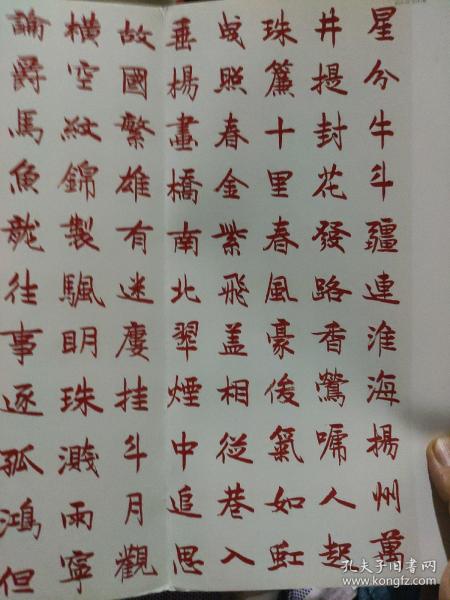 星分牛斗疆連淮海揚州萬
井提封花發路香鶯嗁人起
珠簾十里春風豪俊氣如虹
曳照春金紫飛盖相從巷入
垂楊畫橋南北翠煙中追思
故國繁雄有迷廔挂斗月觀
橫空紋錦製颿明珠濺雨寧
論爵馬魚龍往事逐孤鴻但
孔夫子旧书网
www.kongfz.com